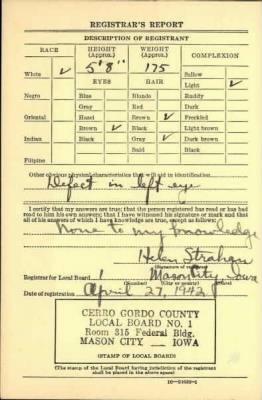 REGISTRAR'S REPORT
DESCRIPTION OF REGISTRANT
RACE HEIGHT (Approx.) WEIGHT (Approx.) COMPLEXION
White ✓ 5'8" 175 Sallow
EYES HAIR Light ✓
Negro Blue Blonde Ruddy
Gray Red Dark
Oriental Hazel Brown ✓ Freckled
Brown ✓ Black Light brown
Indian Black Gray ✓ Dark brown
Bald Black
Filipino
Other obvious physical characteristics that will aid in identification
Defect in left eye
I certify that my answers are true; that the person registered has read or has had
read to him his own answers; that I have witnessed his signature or mark and that
all of his answers of which I have knowledge are true, except as follows:
None to my knowledge
Helen Strahan
(Signature of registrar)
Registrar for Local Board 1 Mason City, Iowa
(Number) (City or county) (State)
Date of registration April 27, 1942
CERRO GORDO COUNTY
LOCAL BOARD NO. 1
Room 315 Federal Bldg.
MASON CITY IOWA
(STAMP OF LOCAL BOARD)
(The stamp of the Local Board having jurisdiction of the registrant
shall be placed in the above space)